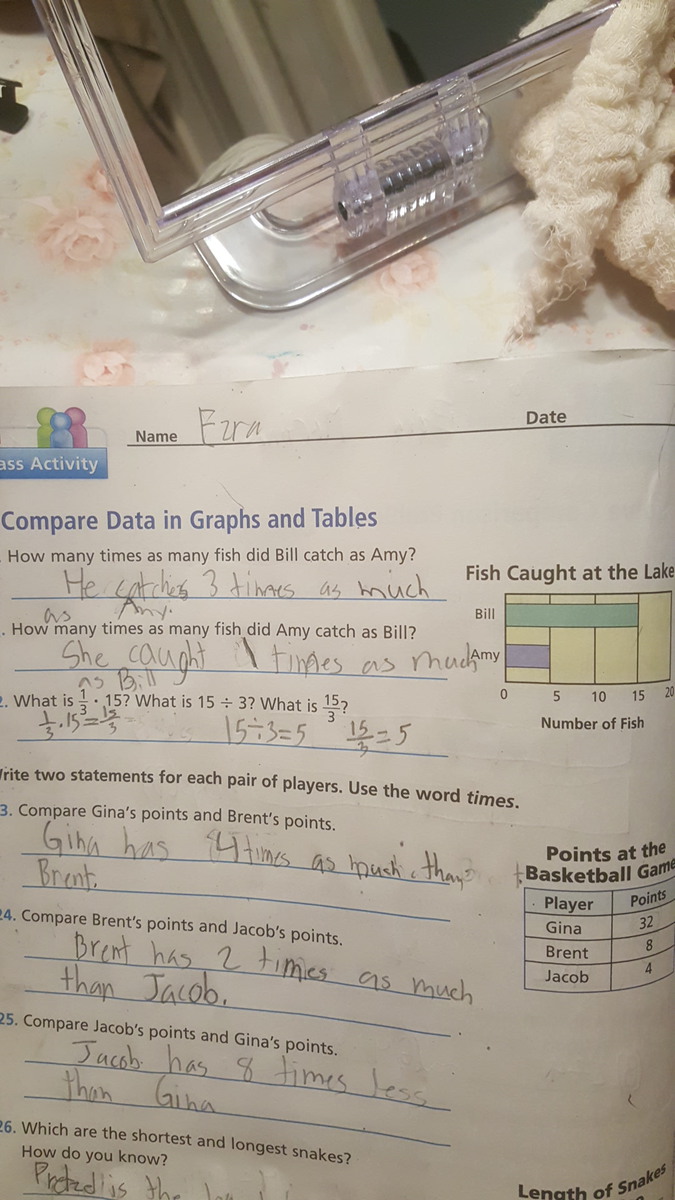 Name Ezra Date
ass Activity
Compare Data in Graphs and Tables
. How many times as many fish did Bill catch as Amy?
He catches 3 times as much
as Amy.
. How many times as many fish did Amy catch as Bill?
She caught times as much
as Bill
2. What is 1/3 · 15? What is 15 ÷ 3? What is 15/3?
1/3 · 15 = 15/3 15÷3=5 15/3 = 5
Fish Caught at the Lake
Bill
Amy
0 5 10 15 20
Number of Fish
rite two statements for each pair of players. Use the word times.
3. Compare Gina's points and Brent's points.
Gina has 4 times as much than
Brent.
24. Compare Brent's points and Jacob's points.
Brent has 2 times as much
than Jacob.
25. Compare Jacob's points and Gina's points.
Jacob has 8 times less
than Gina
Points at the
Basketball Game
Player Points
Gina 32
Brent 8
Jacob 4
26. Which are the shortest and longest snakes?
How do you know?
is the
Length of Snakes